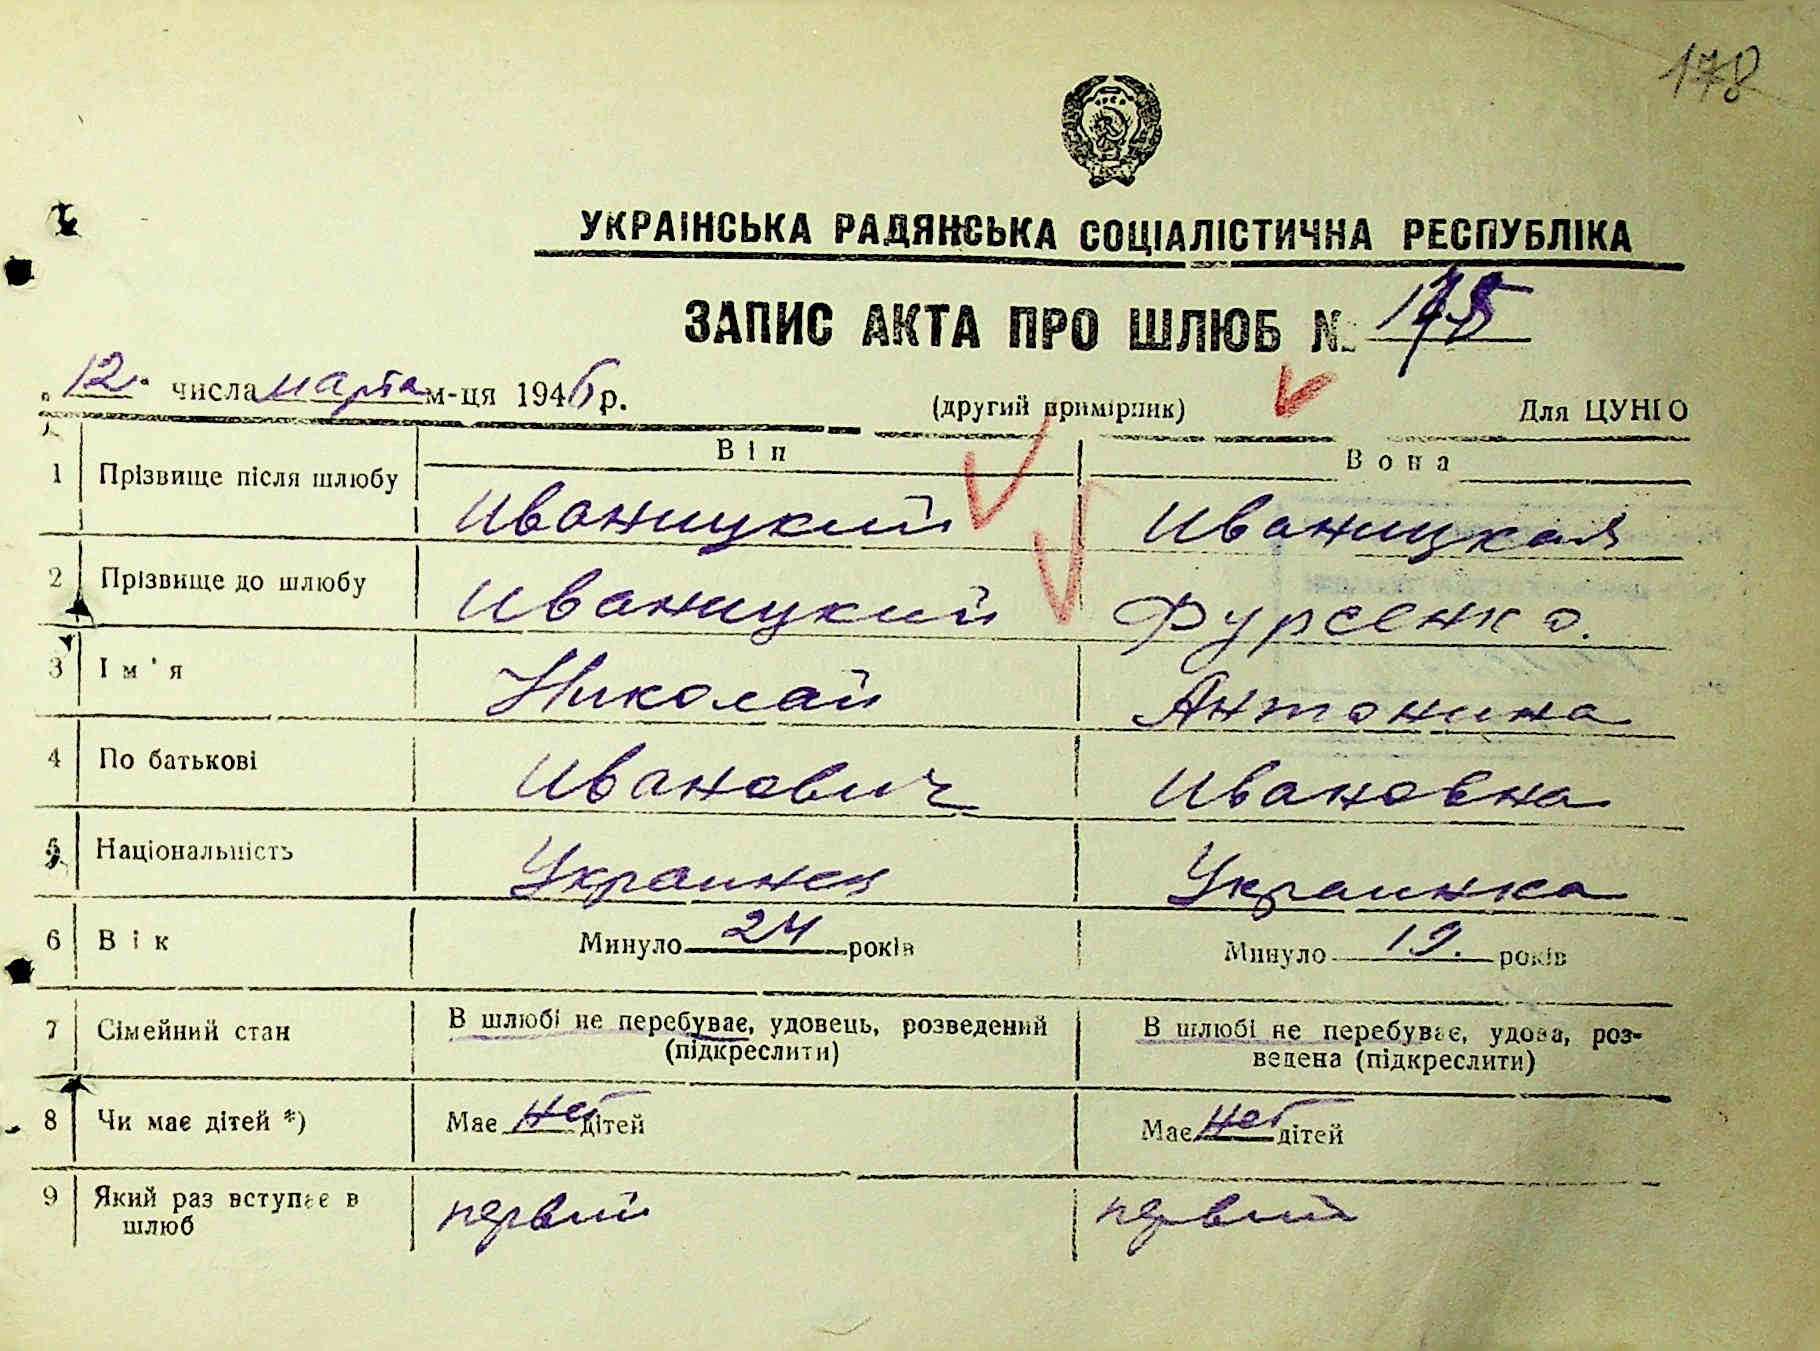 178
УКРАЇНСЬКА РАДЯНСЬКА СОЦІАЛІСТИЧНА РЕСПУБЛІКА
ЗАПИС АКТА ПРО ШЛЮБ №
„12“ числа марта м-ця 1946 р. (другий примірник) Для ЦУНГО
Він Вона
1 Прізвище після шлюбу Иваницкий Иваницкая
2 Прізвище до шлюбу Иваницкий Фурсенко.
3 Ім'я Николай Антонина
4 По батькові Иванович Ивановна
5 Національність Украинец Украинка
6 Вік Минуло 24 років Минуло 19. років
7 Сімейний стан В шлюбі не перебуває, удовець, розведений (підкреслити) В шлюбі не перебуває, удова, роз-
ведена (підкреслити)
8 Чи має дітей *) Має нет дітей Має нет дітей
9 Який раз вступає в
шлюб первий первий